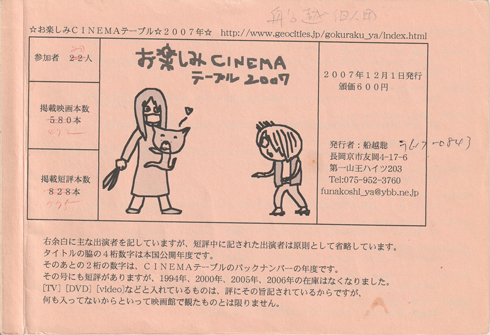 ☆お楽しみCINEMAテーブル☆2007年☆ http://www.geocities.jp/gokuraku_ya/index.html
参加者 22人
掲載映画本数
580本
掲載短評本数
828本
お楽しみCINEMA
テーブル 2007
2007年12月1日発行
頒価600円
発行者：船越聡
長岡京市友岡4-17-6
第一山王ハイツ203
Tel:075-952-3760
funakoshi_ya@ybb.ne.jp
右余白に主な出演者を記していますが、短評中に記された出演者は原則として省略しています。
タイトルの脇の4桁数字は本国公開年度です。
そのあとの2桁の数字は、CINEMAテーブルのバックナンバーの年度です。
その号にも短評がありますが、1994年、2000年、2005年、2006年の在庫はなくなりました。
[TV] [DVD] [video]などと入れているものは、評にその旨記されているからですが、
何も入ってないからといって映画館で観たものとは限りません。